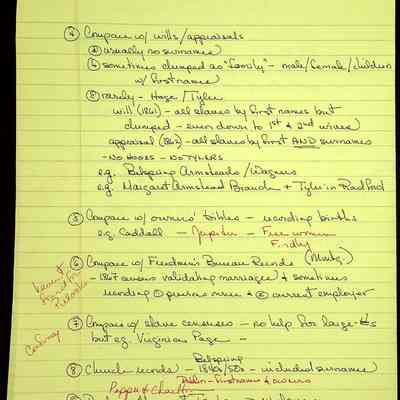 ④ Compare w/ wills/appraisals
ⓐ usually no surnames
ⓑ sometimes clumped as "family" - male/female/children
w/ first name
ⓒ rarely - Hoge/Tyler
will (1861) - all slaves by first names but
clumped - even down to 1st & 2nd wives
appraisal (1862) - all slaves by first AND surnames
- NO HOGES - NO TYLERS
e.g. Botspring Armsteads/Wagners
e.g. Margaret Armstead Branch + Tyler in Radford
⑤ Compare w/ owners' bibles - recording births
e.g. Caddall - Jupiter - Free women
⑥ Compare w/ Freedmen's Bureau Records (Montg.)
- 1867 census validating marriages & sometimes
recording ① previous owner & ② current employer
⑦ Compare w/ slave censuses - no help for large
but e.g. Virginian Page -
⑧ Church records - 1840s/50s - included surnames
Dublin - first names & owners